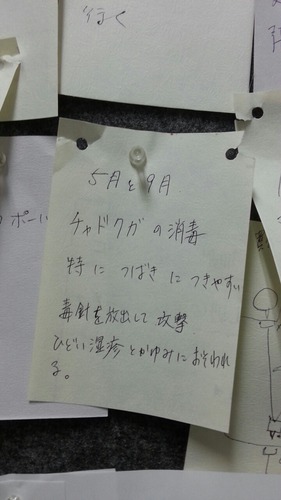 行く
ポール
5月と9月
チャドクガの消毒
特に つばきに つきやすい
毒針を放出して 攻撃
ひどい湿疹とかゆみにおそわれ
る。